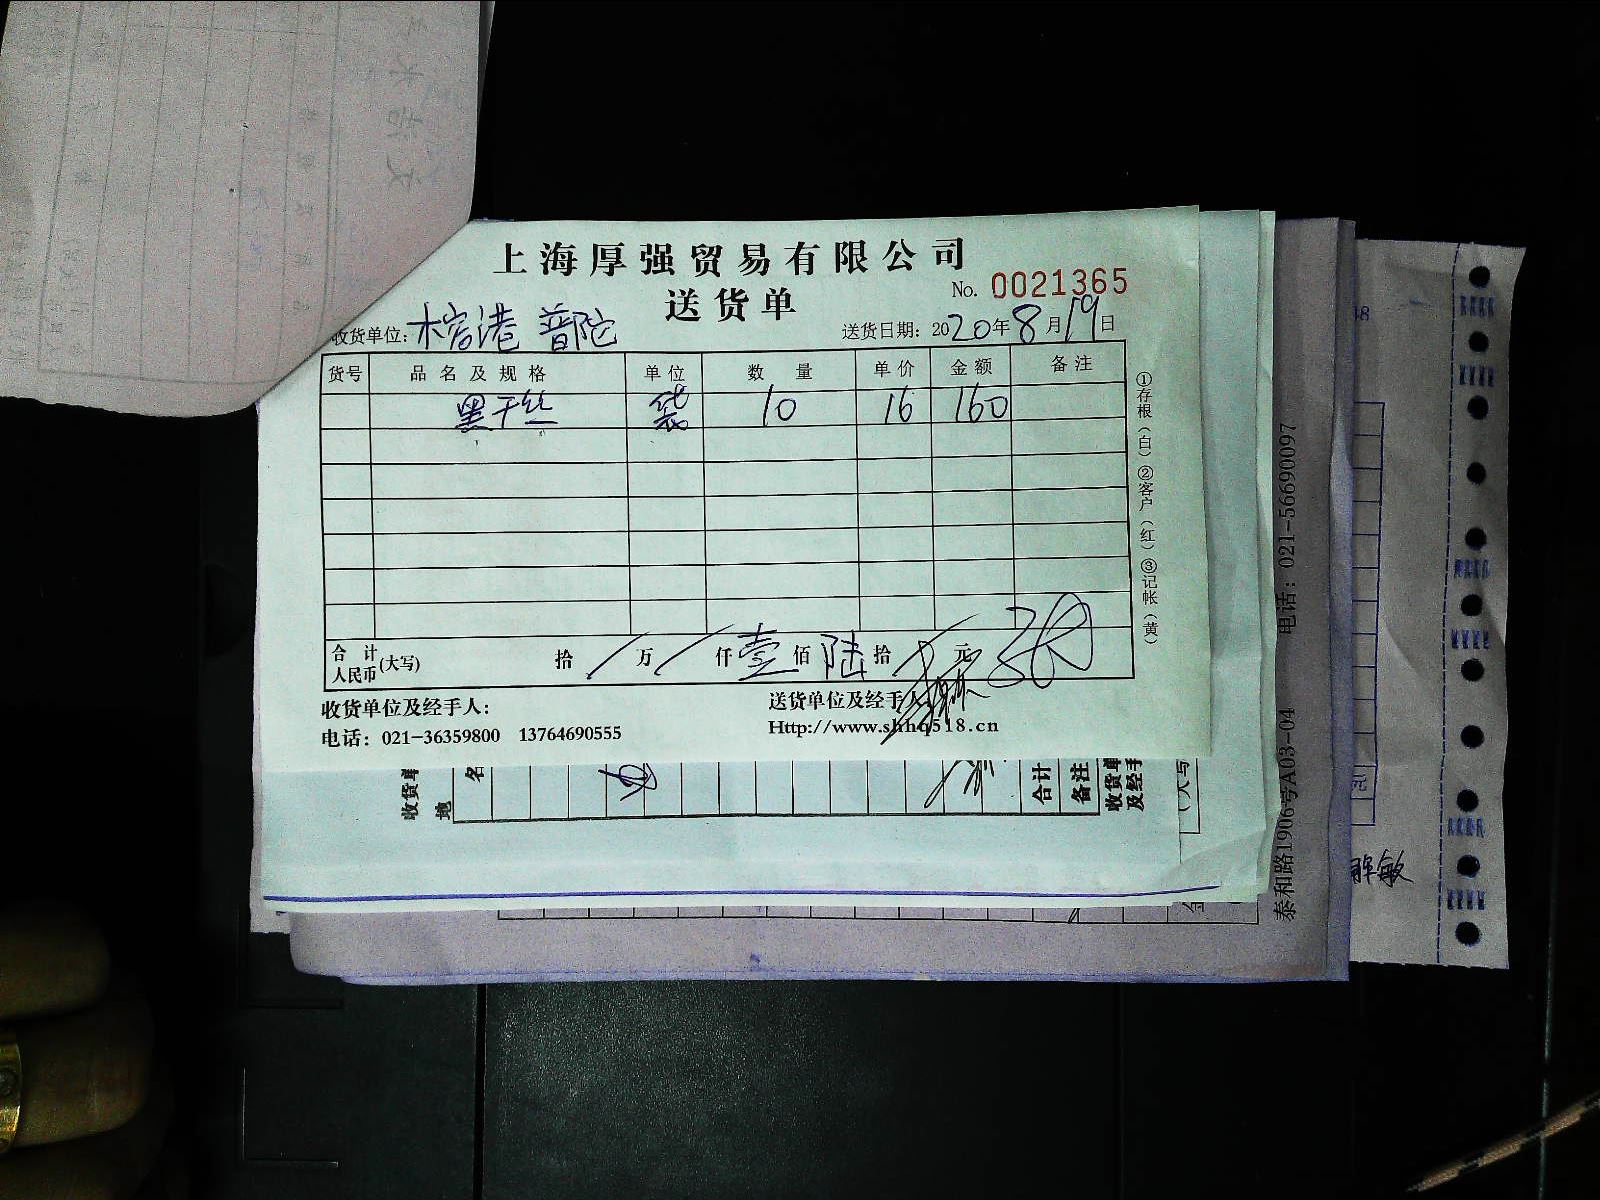 上海厚强贸易有限公司
送货单
No. 0021365
收货单位: 榕港 普陀
送货日期: 2020年8月19日
货号 品名及规格 单位 数量 单价 金额 备注
黑干丝 袋 10 16 160
合计人民币(大写) 拾 / 万 / 仟 壹 佰 陆 拾 元
收货单位及经手人:
送货单位及经手人
电话: 021-36359800 13764690555
Http://www.shhq518.cn
①存根(白)②客户(红)③记帐(黄)
收货单
地
名
合计
备注
收货单
及经手
泰和路1906号A03-04 电话: 021-56690097
元